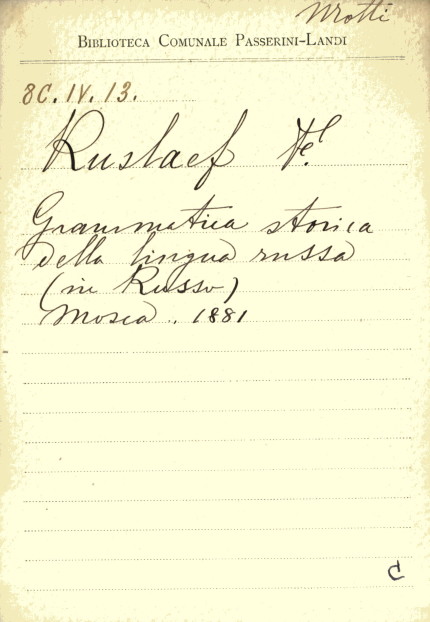 Nrotti
BIBLIOTECA COMUNALE PASSERINI-LANDI
8C. IV. 13.
Ruslaef
Grammatica storica
della lingua russa
(in Russo)
Mosca . 1881
C